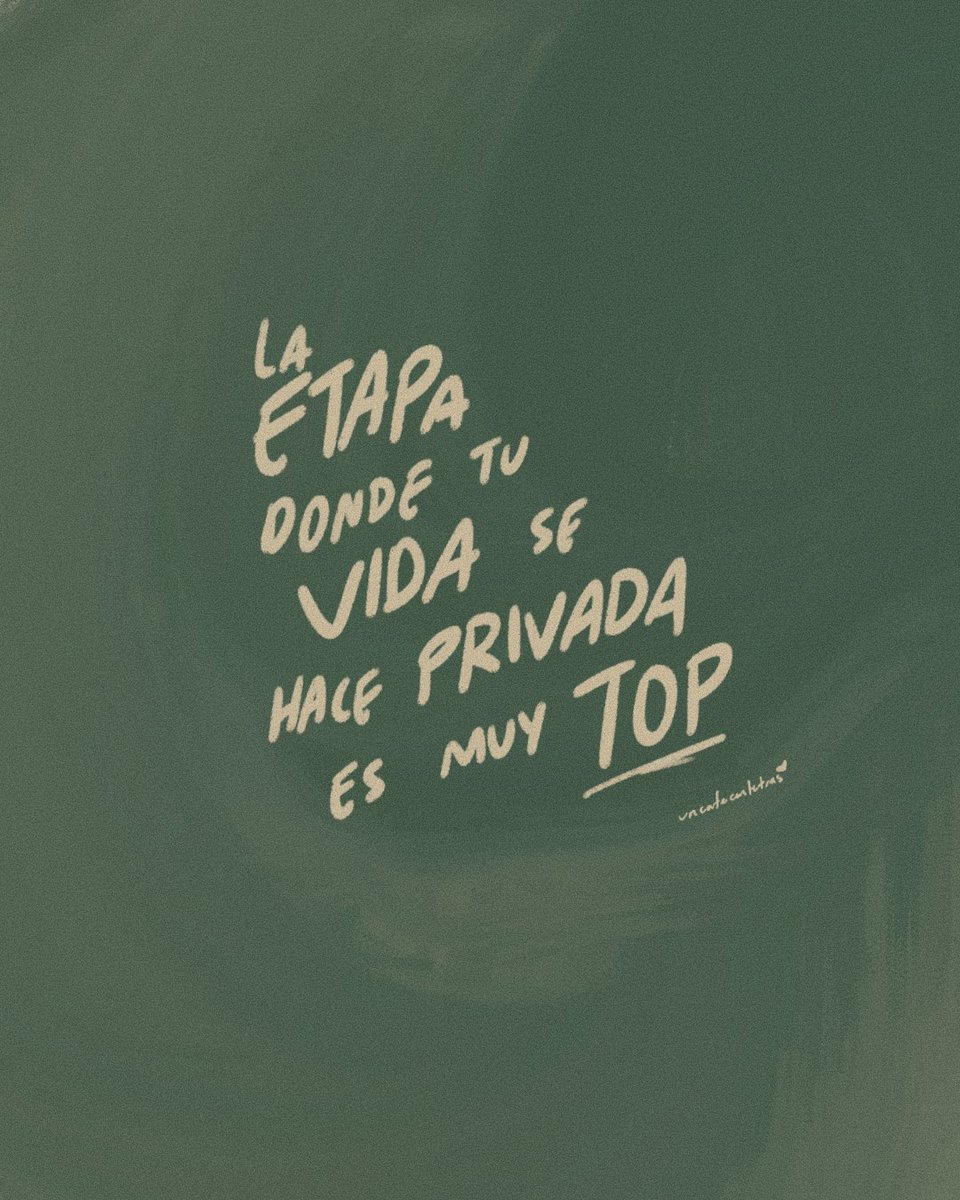 LA
ETAPA
DONDE TU
VIDA SE
HACE PRIVADA
ES MUY TOP
uncafeconletras